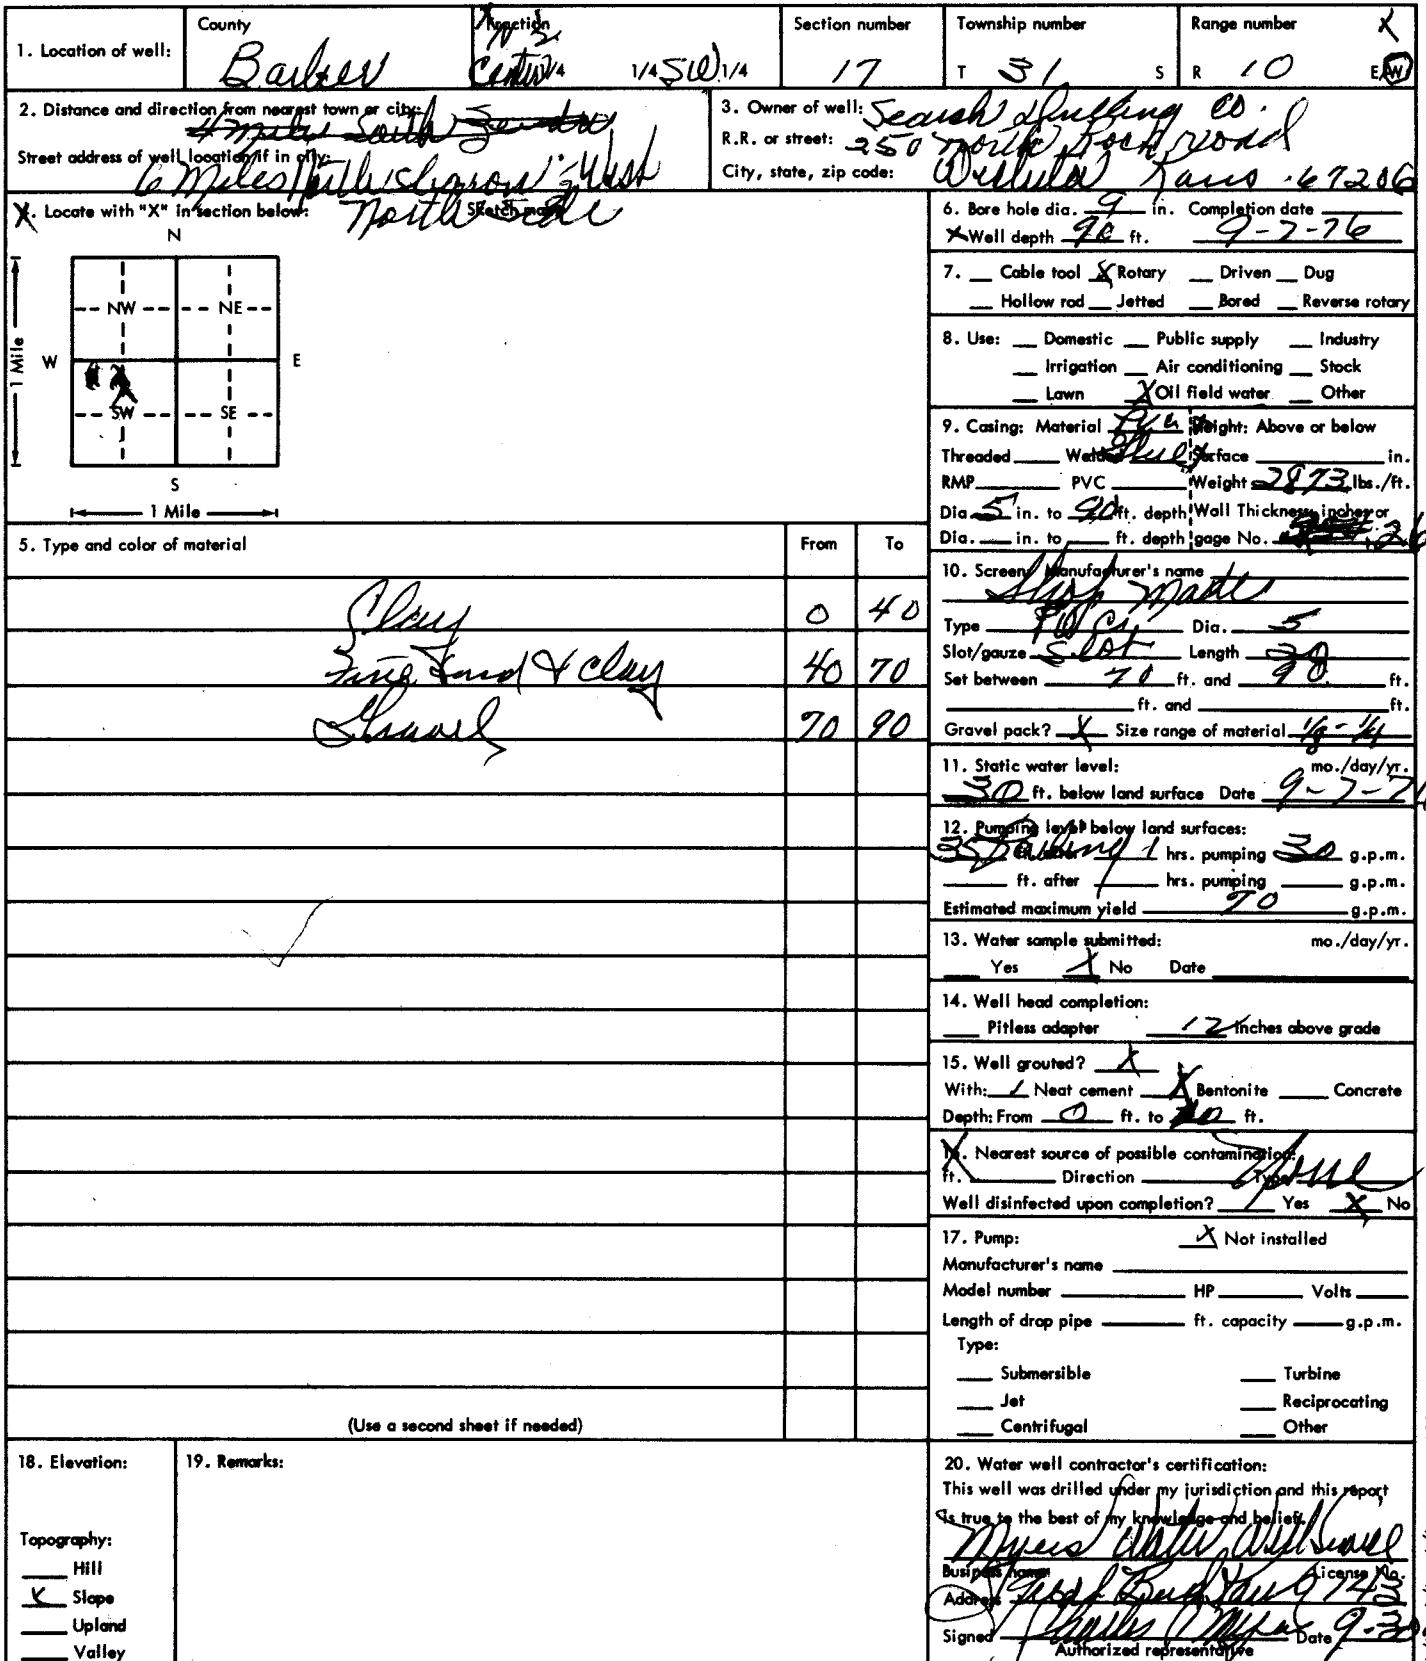 County
Fraction
Section number
Township number
Range number
X
1. Location of well:
Barber
N 2
Center 1/4
1/4 SW 1/4
17
T 31 S
R 10 E/W
2. Distance and direction from nearest town or city:
4 miles South
Street address of well location if in city:
6 Miles North Sharon 1/2 West
North Side
3. Owner of well: Search Drilling Co.
R.R. or street: 250 North Rock Road
City, state, zip code: Wichita Kans. 67206
4. Locate with "X" in section below:
Sketch map
N
NW
NE
W
E
1 Mile
SW
SE
S
1 Mile
5. Type and color of material
From
To
Clay 0 40
Fine Sand & Clay 40 70
Gravel 70 90
(Use a second sheet if needed)
6. Bore hole dia. 9 in. Completion date
X Well depth 90 ft. 9-7-76
7. Cable tool X Rotary Driven Dug
Hollow rod Jetted Bored Reverse rotary
8. Use: Domestic Public supply Industry
Irrigation Air conditioning Stock
Lawn X Oil field water Other
9. Casing: Material Height: Above or below
Threaded Welded Glue Surface in.
RMP PVC Weight 2873 lbs./ft.
Dia 5 in. to 90 ft. depth Wall Thickness: inches or
Dia. in. to ft. depth gage No.
10. Screen: Manufacturer's name
Shop Made
Type Dia. 5
Slot/gauze Slot Length 20
Set between 70 ft. and 90 ft.
ft. and ft.
Gravel pack? X Size range of material 1/8 - 1/4
11. Static water level: mo./day/yr.
30 ft. below land surface Date 9-7-76
12. Pumping level below land surfaces:
35 Bailing 1 hrs. pumping 30 g.p.m.
ft. after hrs. pumping g.p.m.
Estimated maximum yield 70 g.p.m.
13. Water sample submitted: mo./day/yr.
Yes X No Date
14. Well head completion:
Pitless adapter 12 Inches above grade
15. Well grouted? X
With: Neat cement X Bentonite Concrete
Depth: From 0 ft. to ft.
16. Nearest source of possible contamination:
ft. Direction Type None
Well disinfected upon completion? Yes X No
17. Pump: X Not installed
Manufacturer's name
Model number HP Volts
Length of drop pipe ft. capacity g.p.m.
Type:
Submersible Turbine
Jet Reciprocating
Centrifugal Other
18. Elevation:
Topography:
Hill
X Slope
Upland
Valley
19. Remarks:
20. Water well contractor's certification:
This well was drilled under my jurisdiction and this report
is true to the best of my knowledge and belief.
Myers Water Well Service
Business name License No.
Address Great Bend Kan 
Signed Charles Myers Date 9-30
Authorized representative